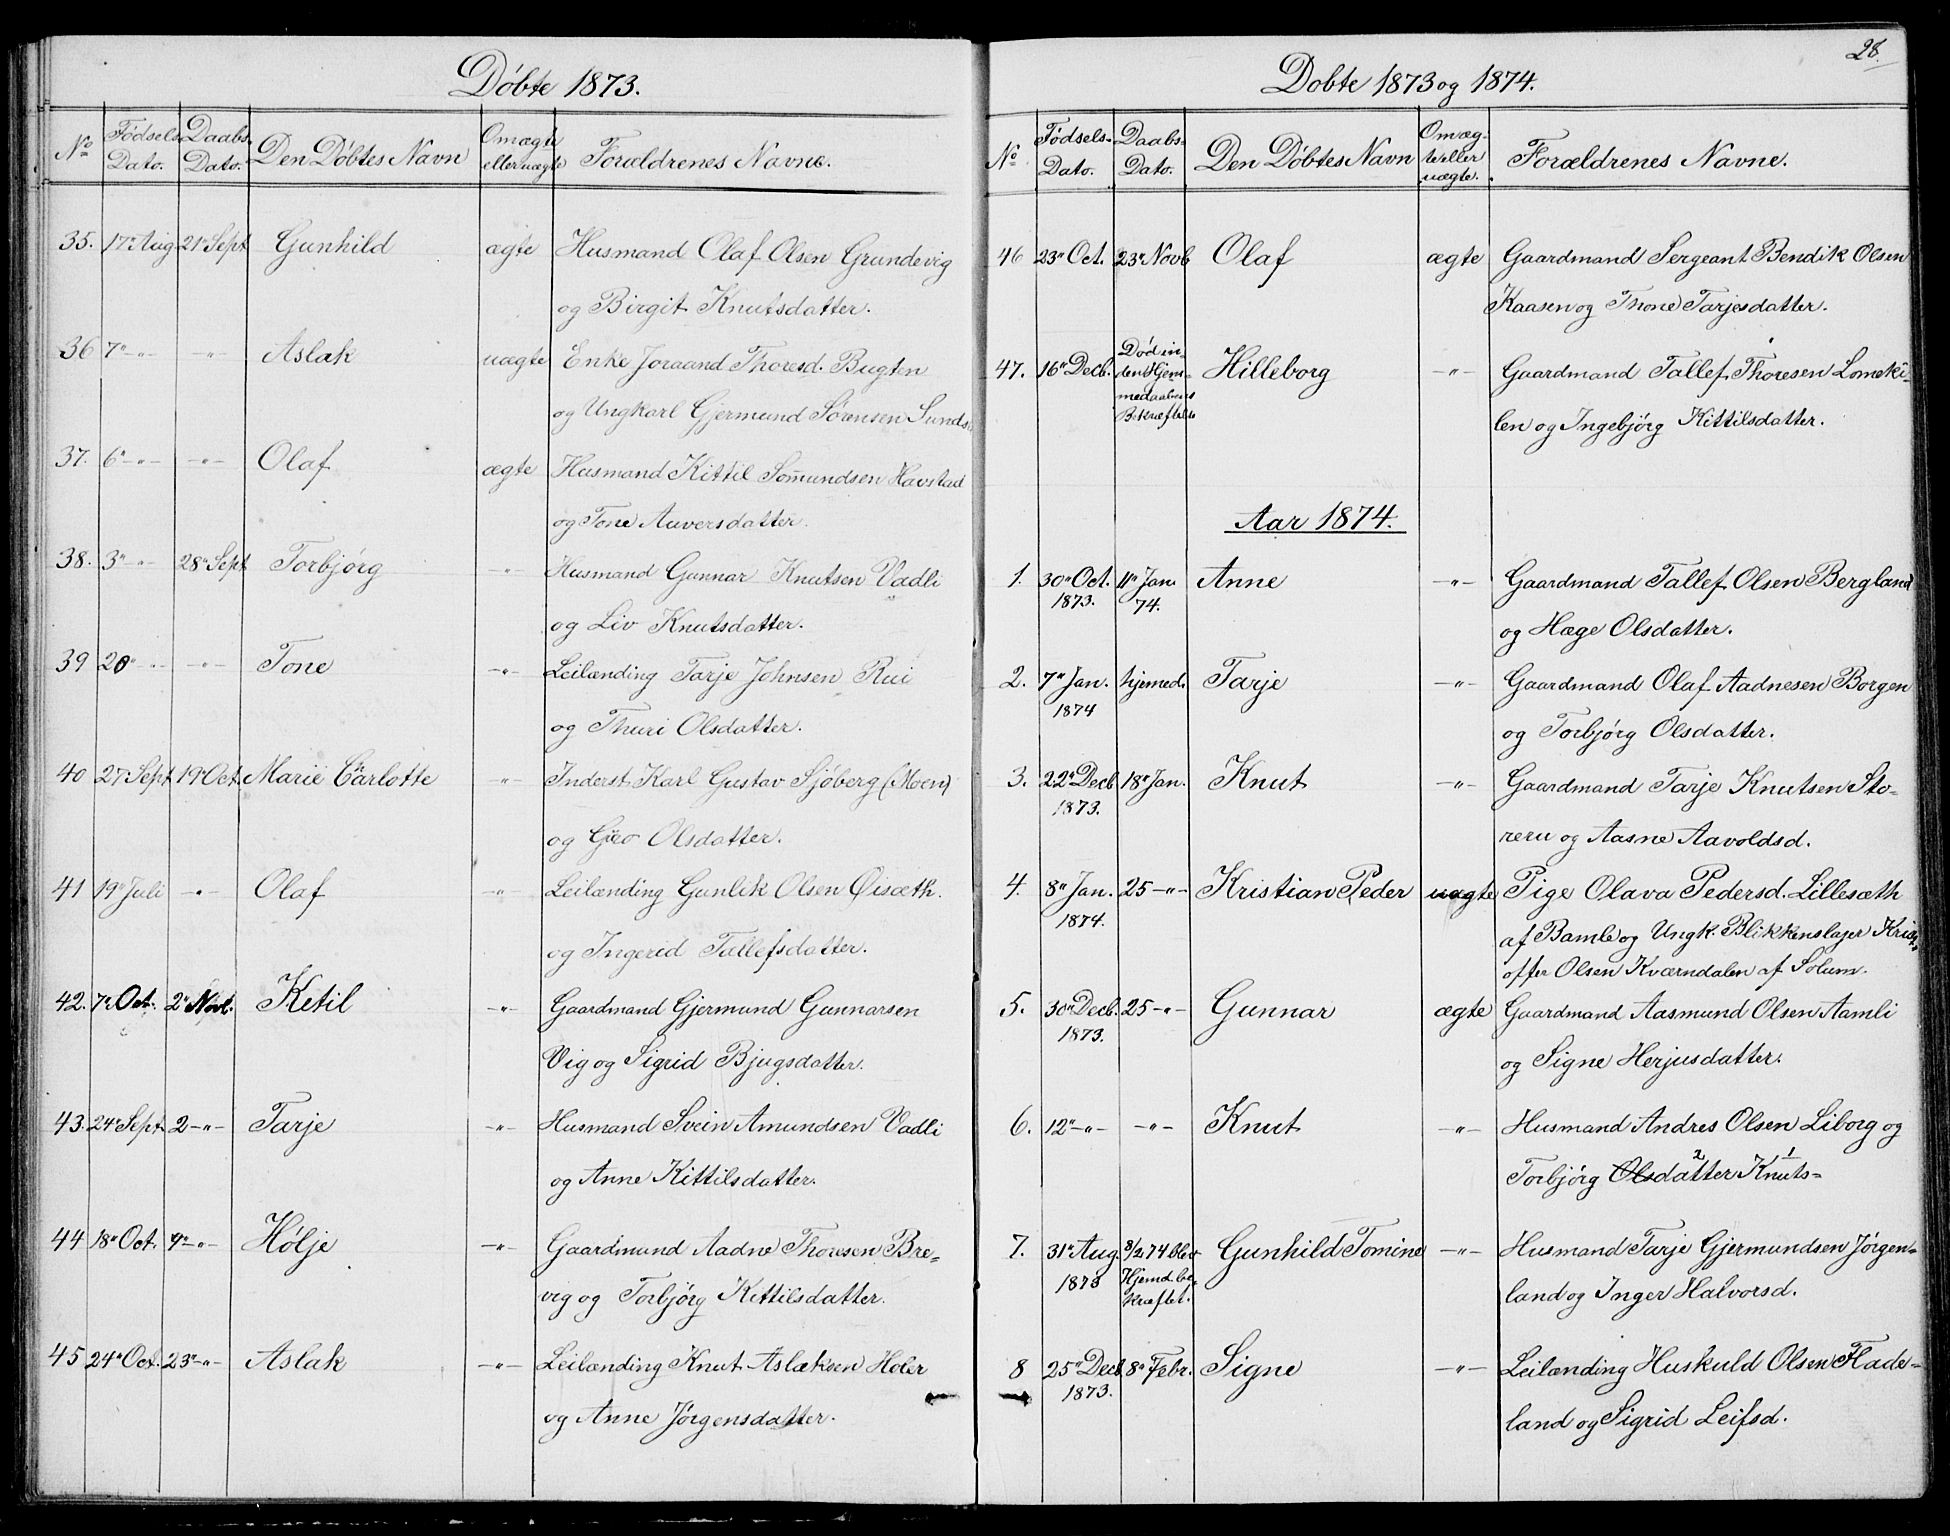 Døbte 1873.
No Fødsels Dato. Daabs Dato. Den Døbtes Navn Om ægte eller uægte Forældrenes Navne.
35. 17" Aug 21" Sept Gunhild ægte Husmand Olaf Olsen Grundevig
og Birgit Knutsdatter.
36 7" -"- -"- Aslak uægte Enke Joraand Thoresd. Bugten
og Ungkarl Gjermund Sørensen Sunds
37. 6" -"- -"- Olaf ægte Husmand Kittil Somundsen Havstad
og Tone Auversdatter.
38. 3" -"- 28" Sept Torbjørg -"- Husmand Gunnar Knutsen Vadli
og Liv Knutsdatter.
39 20" -"- -"- Tone -"- Leilænding Tarje Johnsen Rui
og Thuri Olsdatter.
40 27" Sept 19" Oct. Marie Carlotte -"- Inderst Karl Gustav Sjøberg (Moen)
og Gro Olsdatter.
41 19" Juli -"- Olaf -"- Leilænding Gunlik Olsen Øisæth.
og Ingerid Tallefsdatter.
42. 7" Oct. 2" Novb. Ketil -"- Gaardmand Gjermund Gunnarsen
Vig og Sigrid Bjugsdatter.
43. 24" Sept 2 -"- Tarje -"- Husmand Svein Amundsen Vadli
og Anne Kittilsdatter.
44 18" Oct. 9" -"- Hølje -"- Gaardmand Aadne Thoresen Bre-
vig og Torbjørg Kittilsdatter.
45 24" Oct. 23" -"- Aslak -"- Leilænding Knut Aslaksen Holer
og Anne Jørgensdatter.
28.
Døbte 1873 og 1874.
No Fødsels- Dato. Daabs- Dato. Den Døbtes Navn Om æg- te eller uægte. Forældrenes Navne.
46 23" Oct. 23" Novb Olaf ægte Gaardmand Sergeant Bendik Olsen
Kaasen og Thone Tarjesdatter.
47. 16" Decb. Død in- den Hjem- medaabens Bekræftelse Hilleborg -"- Gaardmand Tallef Thoresen Lomeki-
len og Ingebjørg Kittilsdatter.
Aar 1874.
1. 30" Oct. 1873. 11" Jan 74. Anne -"- Gaardmand Tallef Olsen Bergland
og Hæge Olsdatter.
2. 7" Jan. 1874 hjemed. Tarje -"- Gaardmand Olaf Aadnesen Borgen
og Torbjørg Olsdatter.
3. 22" Decb 1873. 18" Jan. Knut -"- Gaardmand Tarje Knutsen Sto-
reru og Aasne Aavoldsd.
4. 8" Jan. 1874. 25 -"- Kristian Peder uægte Pige Olava Pedersd. Lillesæth
af Bamle og Ungk. Blikkenslager Krist-
offer Olsen Kværndalen af Solum.
5. 30" Decb. 1873. 25 -"- Gunnar ægte Gaardmand Aasmund Olsen Aamli
og Signe Herjusdatter.
6. 12" -"- -"- Knut -"- Husmand Andres Olsen Liborg og
Torbjørg Olsdatter 2 Knuts- 1
7. 31" Aug 1873 8/2 74 blev Hjemd. be- kræftet. Gunhild Tomine -"- Husmand Tarje Gjermundsen Jørgen-
land og Inger Halvorsd.
8 25" Decb 1873. 8" Febr. Signe -"- Leilænding Huskuld Olsen Flade-
land og Sigrid Leifsd.